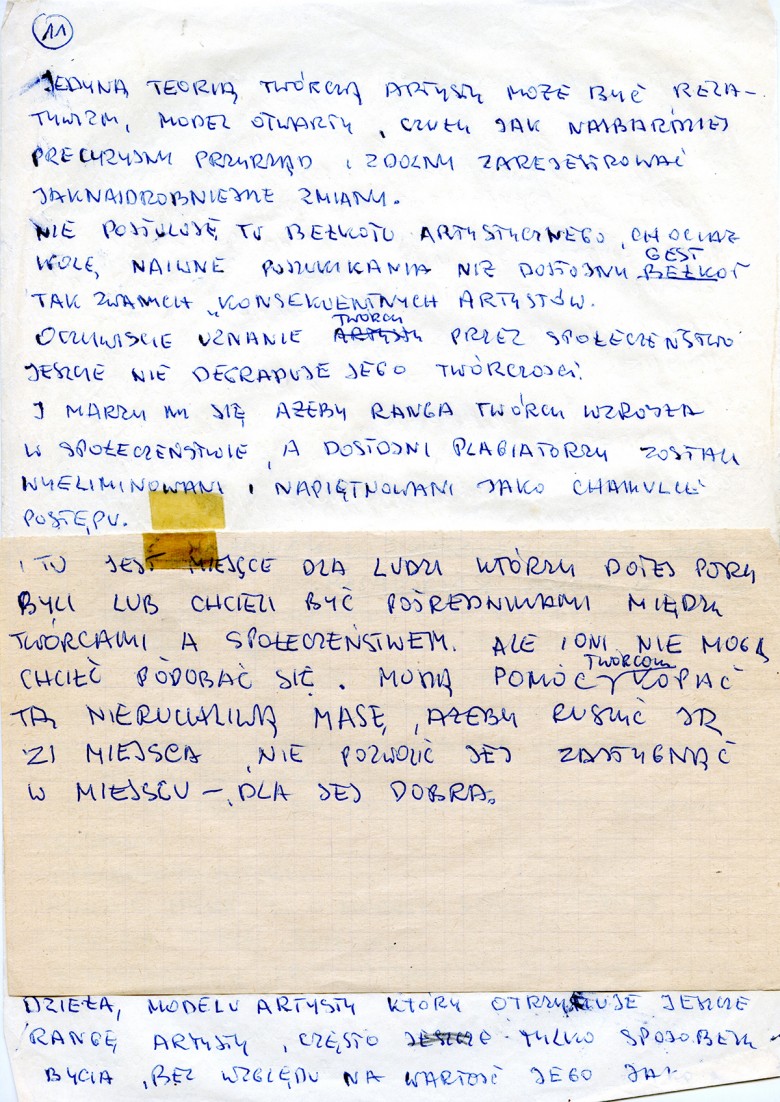 11
JEDYNĄ TEORIĄ TWÓRCZĄ ARTYSTY MOŻE BYĆ RELA-
TYWIZM, MODEL OTWARTY, CZUŁY JAK NAJBARDZIEJ
PRECYZYJNY PRZYRZĄD I ZDOLNY ZAREJESTROWAĆ
JAKNAJDROBNIEJSZE ZMIANY.
NIE POSTULUJĘ TU BEŁKOTU ARTYSTYCZNEGO, CHOCIAŻ
GEST
WOLĘ NAIWNE POSZUKIWANIA NIŻ DOSTOJNY BEŁKOT
TAK ZWANYCH „KONSEKWENTNYCH ARTYSTÓW.
TWÓRCY
OCZYWIŚCIE UZNANIE ARTYSTY PRZEZ SPOŁECZEŃSTWO
JESZCZE NIE DEGRADUJE JEGO TWÓRCZOŚCI.
I MARZY MI SIĘ AŻEBY RANGA TWÓRCY WZROSŁA
W SPOŁECZEŃSTWIE, A DOSTOJNI PLAGIATORZY ZOSTALI
WYELIMINOWANI I NAPIĘTNOWANI JAKO CHAMULCE
POSTĘPU.
I TU JEST MIEJSCE DLA LUDZI KTÓRZY DOTEJ PORY
BYLI LUB CHCIELI BYĆ POŚREDNIKAMI MIĘDZY
TWÓRCAMI A SPOŁECZEŃSTWEM. ALE I ONI NIE MOGĄ
CHCIEĆ PODOBAĆ SIĘ. MUSZĄ POMÓC TWÓRCOM KOPAĆ
TĄ NIERUCHLIWĄ MASĘ, AŻEBY RUSZYĆ JĄ
Z MIEJSCA, NIE POZWOLIĆ JEJ ZASTYGNĄĆ
W MIEJSCU – DLA JEJ DOBRA.
DZIEŁA, MODELU ARTYSTY KTÓRY OTRZYMUJE JESZCZE
RANGĘ ARTYSTY, CZĘSTO TYLKO SPOSOBEM
BYCIA, BEZ WZGLĘDU NA WARTOŚĆ JEGO